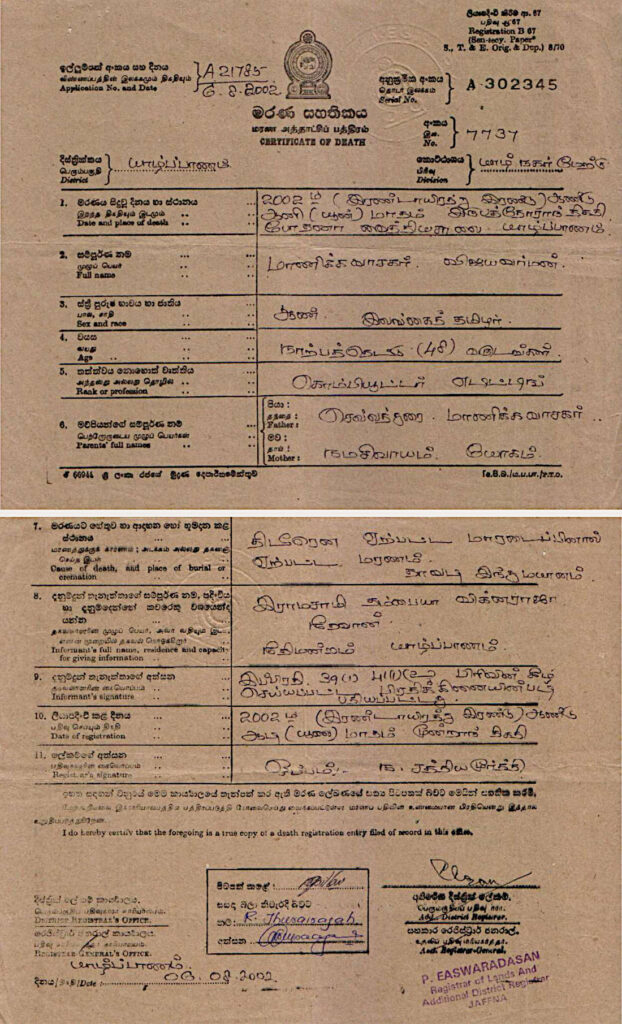 ලියාපදිංචි කිරීම ආ. 67
பதிவு ஆ 67
Registration B 67
(Sen-secy. Paper)
S., T. & E. Orig. & Dup.) 8/70
ඉල්ලුම්පත් අංකය සහ දිනය
விண்ணப்பத்தின் இலக்கமும் திகதியும்
Application No. and Date
A 21785
6.8.2002
අනුක්‍රමික අංකය
தொடர் இலக்கம்
Serial No.
A-302345
මරණ සහතිකය
மரண அத்தாட்சிப் பத்திரம்
CERTIFICATE OF DEATH
අංකය
இல.
No.
7737
දිස්ත්‍රික්කය
பெரும்பகுதி
District
யாழ்ப்பாணம்
කොට්ඨාශය
பிரிவு
Division
யாழ் நகர்
1. මරණය සිදුවූ දිනය හා ස්ථානය
இறந்த திகதியும் இடமும்
Date and place of death
2002 ம் (இரண்டாயிரத்து இரண்டு) ஆண்டு
ஆனி (யூன்) மாதம் திகதி
போதனா வைத்தியசாலை யாழ்ப்பாணம்
2. සම්පූර්ණ නම
முழுப் பெயர்
Full name
மாணிக்கவாசகர் விஜயவர்மன்
3. ස්ත්‍රී පුරුෂ භාවය හා ජාතිය
பால், சாதி
Sex and race
ஆண் இலங்கைத் தமிழர்
4. වයස
வயது
Age
நாற்பத்தெட்டு (48) வருடங்கள்
5. තත්ත්වය නොහොත් වෘත්තිය
அந்தஸ்து அல்லது தொழில்
Rank or profession
கொம்பியூட்டர்
6. මව්පියන්ගේ සම්පූර්ණ නම්
பெற்றோருடைய முழுப் பெயர்கள்
Parents' full names
පියා :
தந்தை :
Father :
செல்வத்துரை மாணிக்கவாசகர்
මව :
தாய் :
Mother :
நமசிவாயம் யோகம்
66944 ශ්‍රී ලංකා රජයේ මුද්‍රණ දෙපාර්තමේන්තුව
7. මරණයට හේතුව හා ආදාහන හෝ භූමදාන කළ
ස්ථානය
மரணத்துக்குக் காரணம் ; அடக்கம் அல்லது தகனம்
செய்த இடம்
Cause of death, and place of burial or
cremation
திடீரென ஏற்பட்ட மாரடைப்பினால்
ஏற்பட்ட மரணம்
இந்துமயானம்
8. දැනුම්දුන් තැනැත්තාගේ සම්පූර්ණ නම, පදිංචිය
හා දැනුම්දෙන්නේ කවරෙකු වශයෙන්ද
යන්න
Informant's full name, residence and capacity
for giving information
இராமசாமி தம்பையா விக்னராஜா
யாழ்ப்பாணம்
9. දැනුම්දුන් තැනැත්තාගේ අත්සන
தகவலாளரின் கையொப்பம்
Informant's signature
39(1) 41(1) பிரிவின் கீழ்
செய்யப்பட்ட
10. ලියාපදිංචි කළ දිනය
பதிவு செய்யும் திகதி
Date of registration
2002 ம் (இரண்டாயிரத்து இரண்டு) ஆண்டு
ஆடி (யூலை) மாதம் மூன்றாம் திகதி
11. ලේකම්ගේ අත්සන
பதிவுகாரரின் கையொப்பம்
Registrar's signature
ஒப்பம்:- ந. சத்தியமூர்த்தி
I do hereby certify that the foregoing is a true copy of a death registration entry filed of record in this office.
DISTRICT REGISTRAR'S OFFICE.
REGISTRAR-GENERAL'S OFFICE.
யாழ்ப்பாணம்
දිනය/திகதி/Date :
06.08.2002
පිටපත් කළේ :
සසඳා බලා නිවැරදි බවට
නම:
අත්සන :
Addl. District Registrar.
Asst. Registrar-General.
P. EASWARADASAN
Registrar of Lands And
Additional District Registrar
JAFFNA